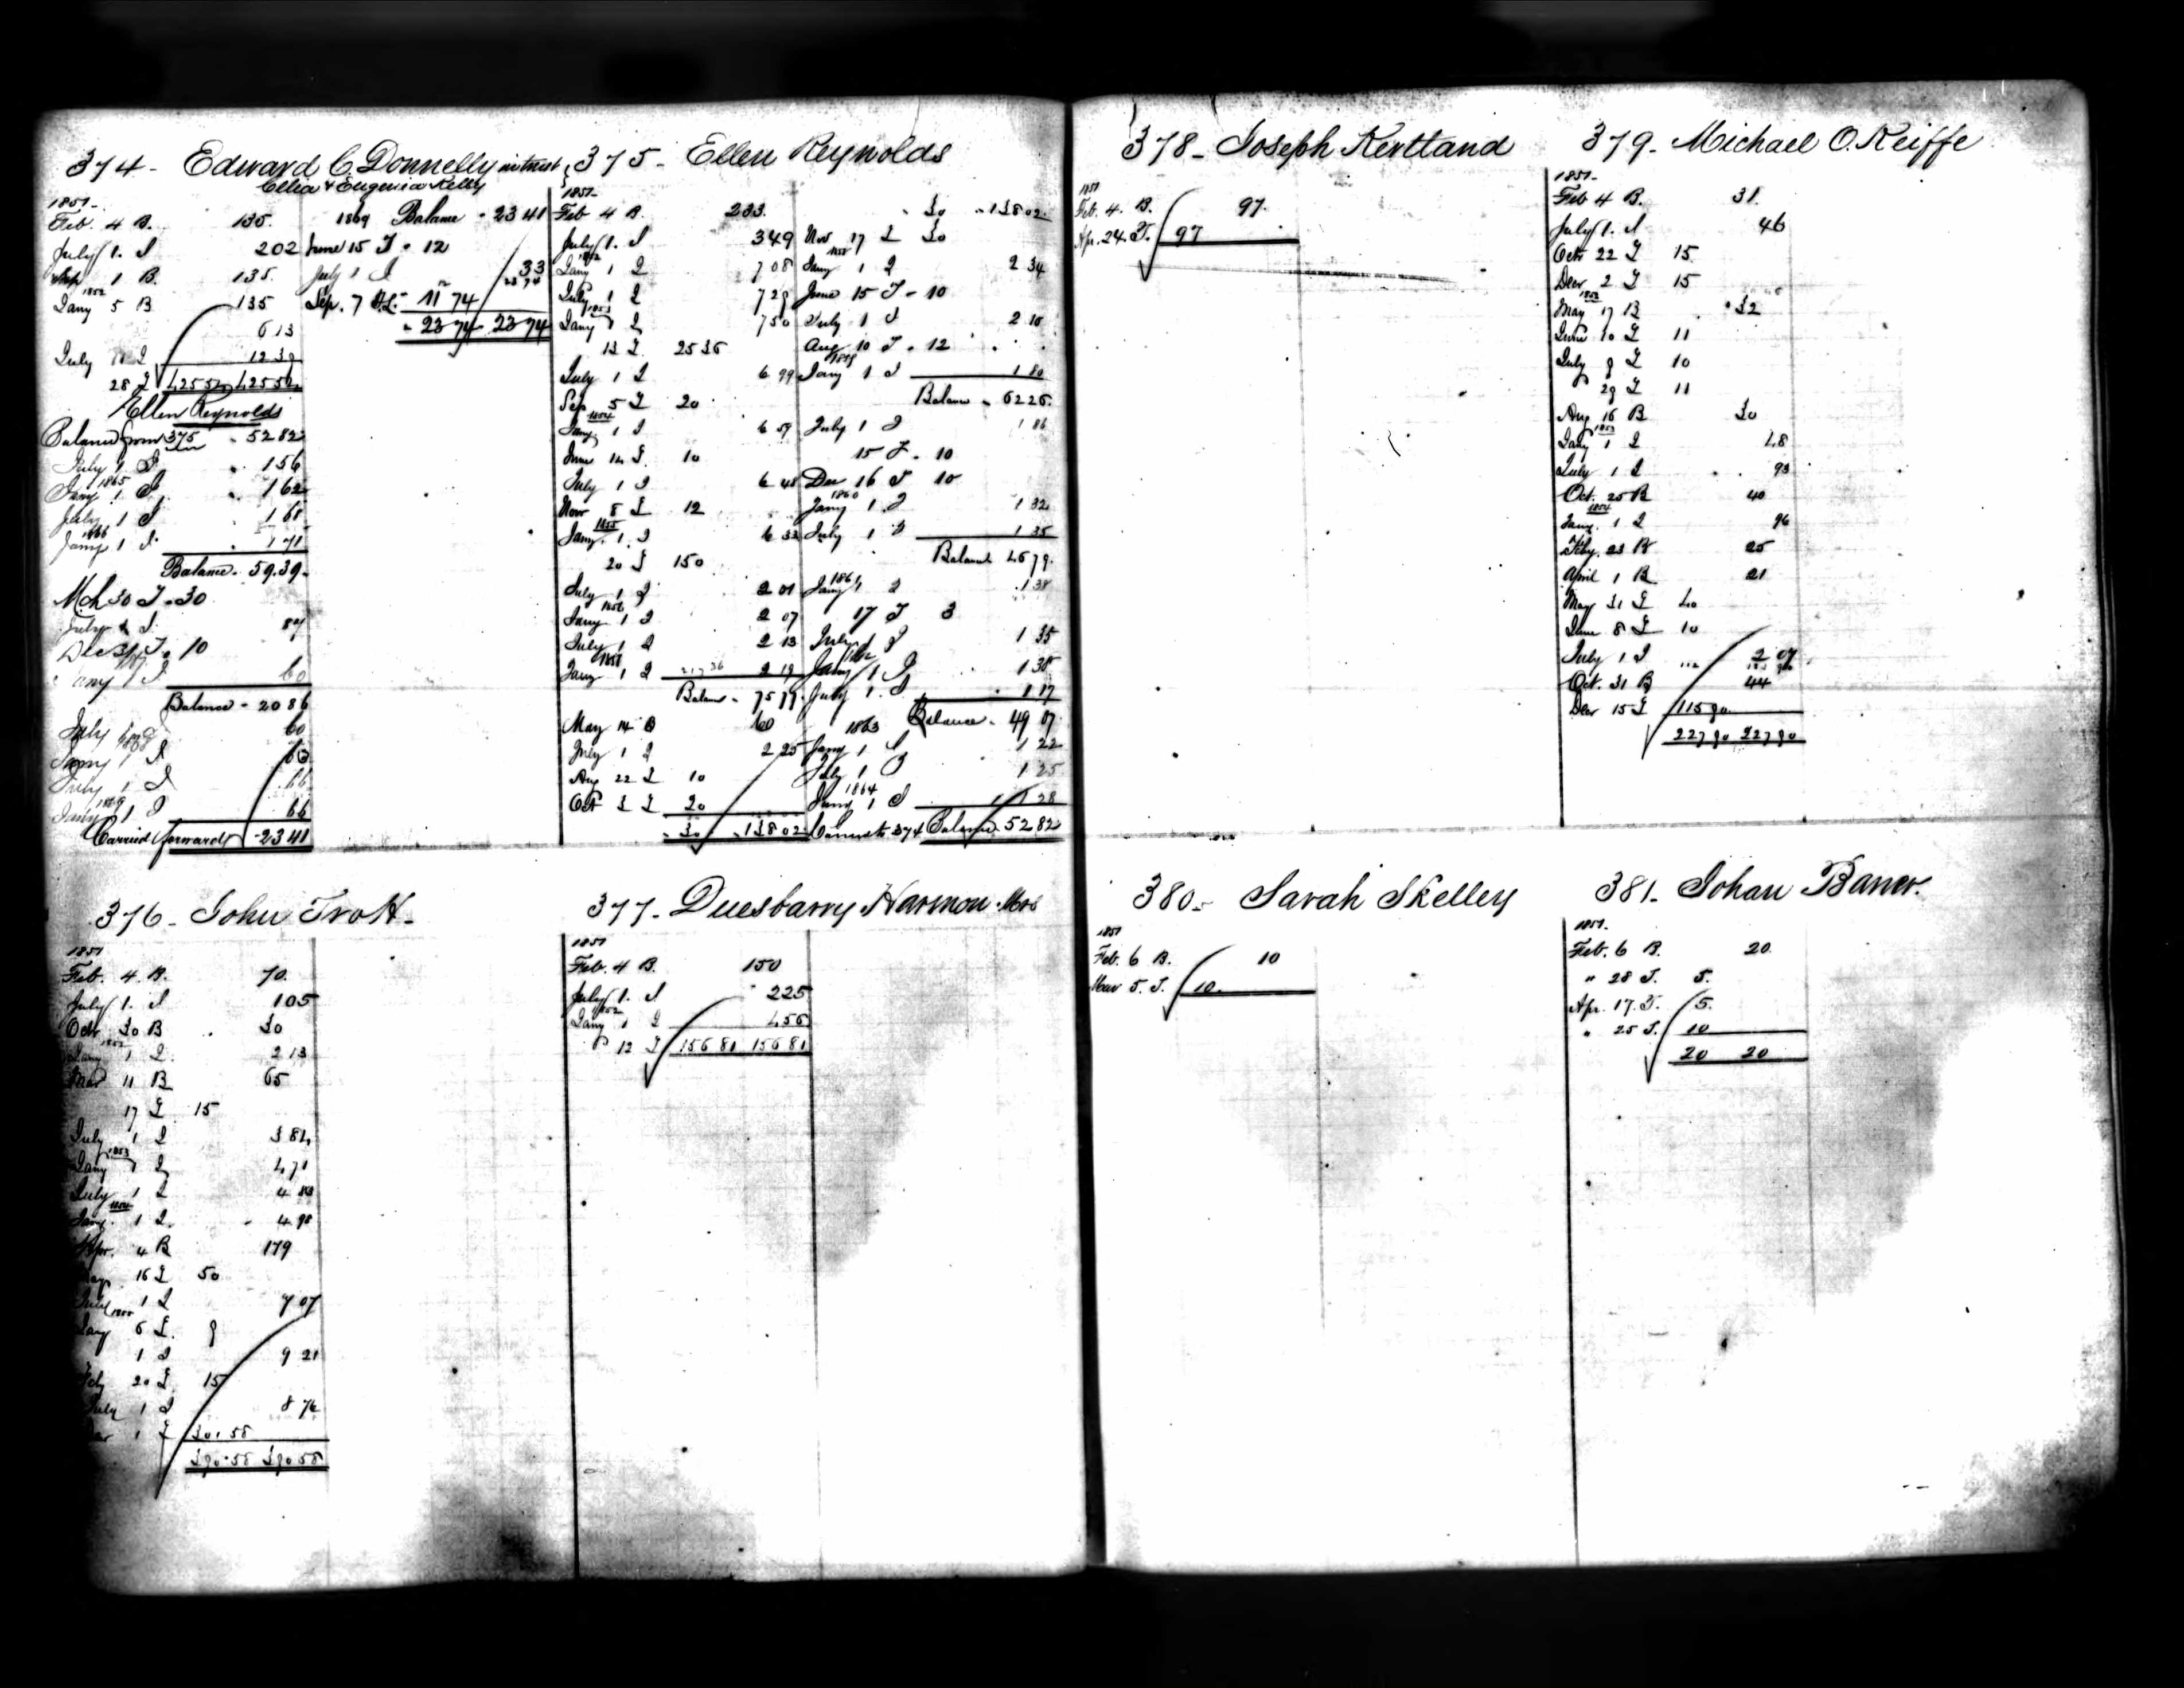 374 - Edward C. Donnelly in trust
Celia & Eugenia Kelly
1851 -
Feb. 4 B. 135.
July 1. I 2 02
Sep 1 B. 135.
1852
Jany 5 B 135
6 13
July 1 I 12 39
28 T 425 52 425 52
Ellen Reynolds
Balance from 375 - 52 82
July 1 I 1 56
1865
Jany 1 I 1 62
July 1 I 1 68
1866
Jany 1 I 1 71
Balance - 59.39 -
Mch 30 T - 30
July 1 I 87
Dec 31 T - 10
Jany 1 I 60
Balance - 20 86
July 1 I 60
1868
Jany 1 I 63
July 1 I 66
1869
Jany 1 I 66
Carried forward - 23 41
1869 Balance - 23 41
June 15 T - 12
July 1 I 33
Sep. 7 - 11 74
- 23 74 - 23 74
375 - Ellen Reynolds
1851 -
Feb 4 B. 233.
July 1. I 3 49
1852
Jany 1 I 7 08
July 1 I 7 29
1853
Jany 1 I 7 50
13 T 25 36
July 1 I 6 99
Sep 5 T 20
1854
Jany 1 I 6 59
June 14 T. 10
July 1 I 6 48
Nov 8 T 12
1855
Jany 1. I 6 33
20 T 150
July 1 I 2 01
1856
Jany 1 I 2 07
July 1 I 2 13
Jany 1 I 217 36 2 19
Balance - 75 79.
May 14 B 60
July 1 I 2 25
Aug 22 T 10
Oct 3 T 20
- 30 - 138 02
- 30 - 138 02
Nov 17 T 30
1858
Jany 1 I 2 34
June 15 T - 10
July 1 I 2 10
Aug 10 T - 12
1859
Jany 1 I 1 80
Balance - 62 26.
July 1 I 1 86
15 T - 10
Dec 16 T 10
1860
Jany 1. I 1 32
July 1 I 1 35
Balance 46 79.
1861
Jany 1 I 1 38
17 T 3
July 1 I 1 35
1862
Jany 1 I 1 38
July 1. I 1 17
1863 Balance - 49 07
Jany 1 I 1 22
July 1 I 1 25
1864
Jany 1 I 1 28
Carried to 374 Balance - 52 82
376 - John Trott -
1851
Feb. 4. B. 70.
July 1. I 1 05
Octr 30 B 30
1852
Jany 1 I 2 13
Mar 11 B 65
17 T 15
July 1 I 3 84
1853
Jany 1 I 4 71
July 1 I 4 83
1854
Jany. 1 I 4 98
Apr. 4 B 179
May 16 T 50
July 1 I 7 07
1855
Jany 6 T. 9
1 I 9 21
Feby 20 T 15
July 1 I 8 76
1 T 301.58
390.58 390 58
377 - Duesbarry Harmon Mrs
1851
Feb. 4 B. 150
July 1. I 2 25
1852
Jany 1 I 4 56
" 12 T 156 81 156 81
378 - Joseph Kertland
1851
Feb. 4. B. 97.
Apr. 24. T. 97
379 - Michael O. Keiffe
1851 -
Feb 4 B. 31.
July 1. I 46
Octr 22 T 15
Decr 2 T 15
1852
May 17 B 32
June 10 T 11
July 9 T 10
29 T 11
Aug 16 B 30
1853
Jany 1 I 48
July 1 I 93
Oct. 25 B 40
1854
Jany. 1 I 96
Feby. 23 B 25
April 1 B 21
May 31 T 40
June 8 T 10
July 1 I 2 07
Oct. 31 B 44
Decr 15 T 115 90
227 90 227 90
380 - Sarah Skelley
1851
Feb. 6 B. 10
Mar 5. T. 10.
381 - Johan Baner.
1851.
Feb. 6 B. 20.
" 28 T. 5.
Apr. 17. T. 5.
" 25 T. 10
20 20